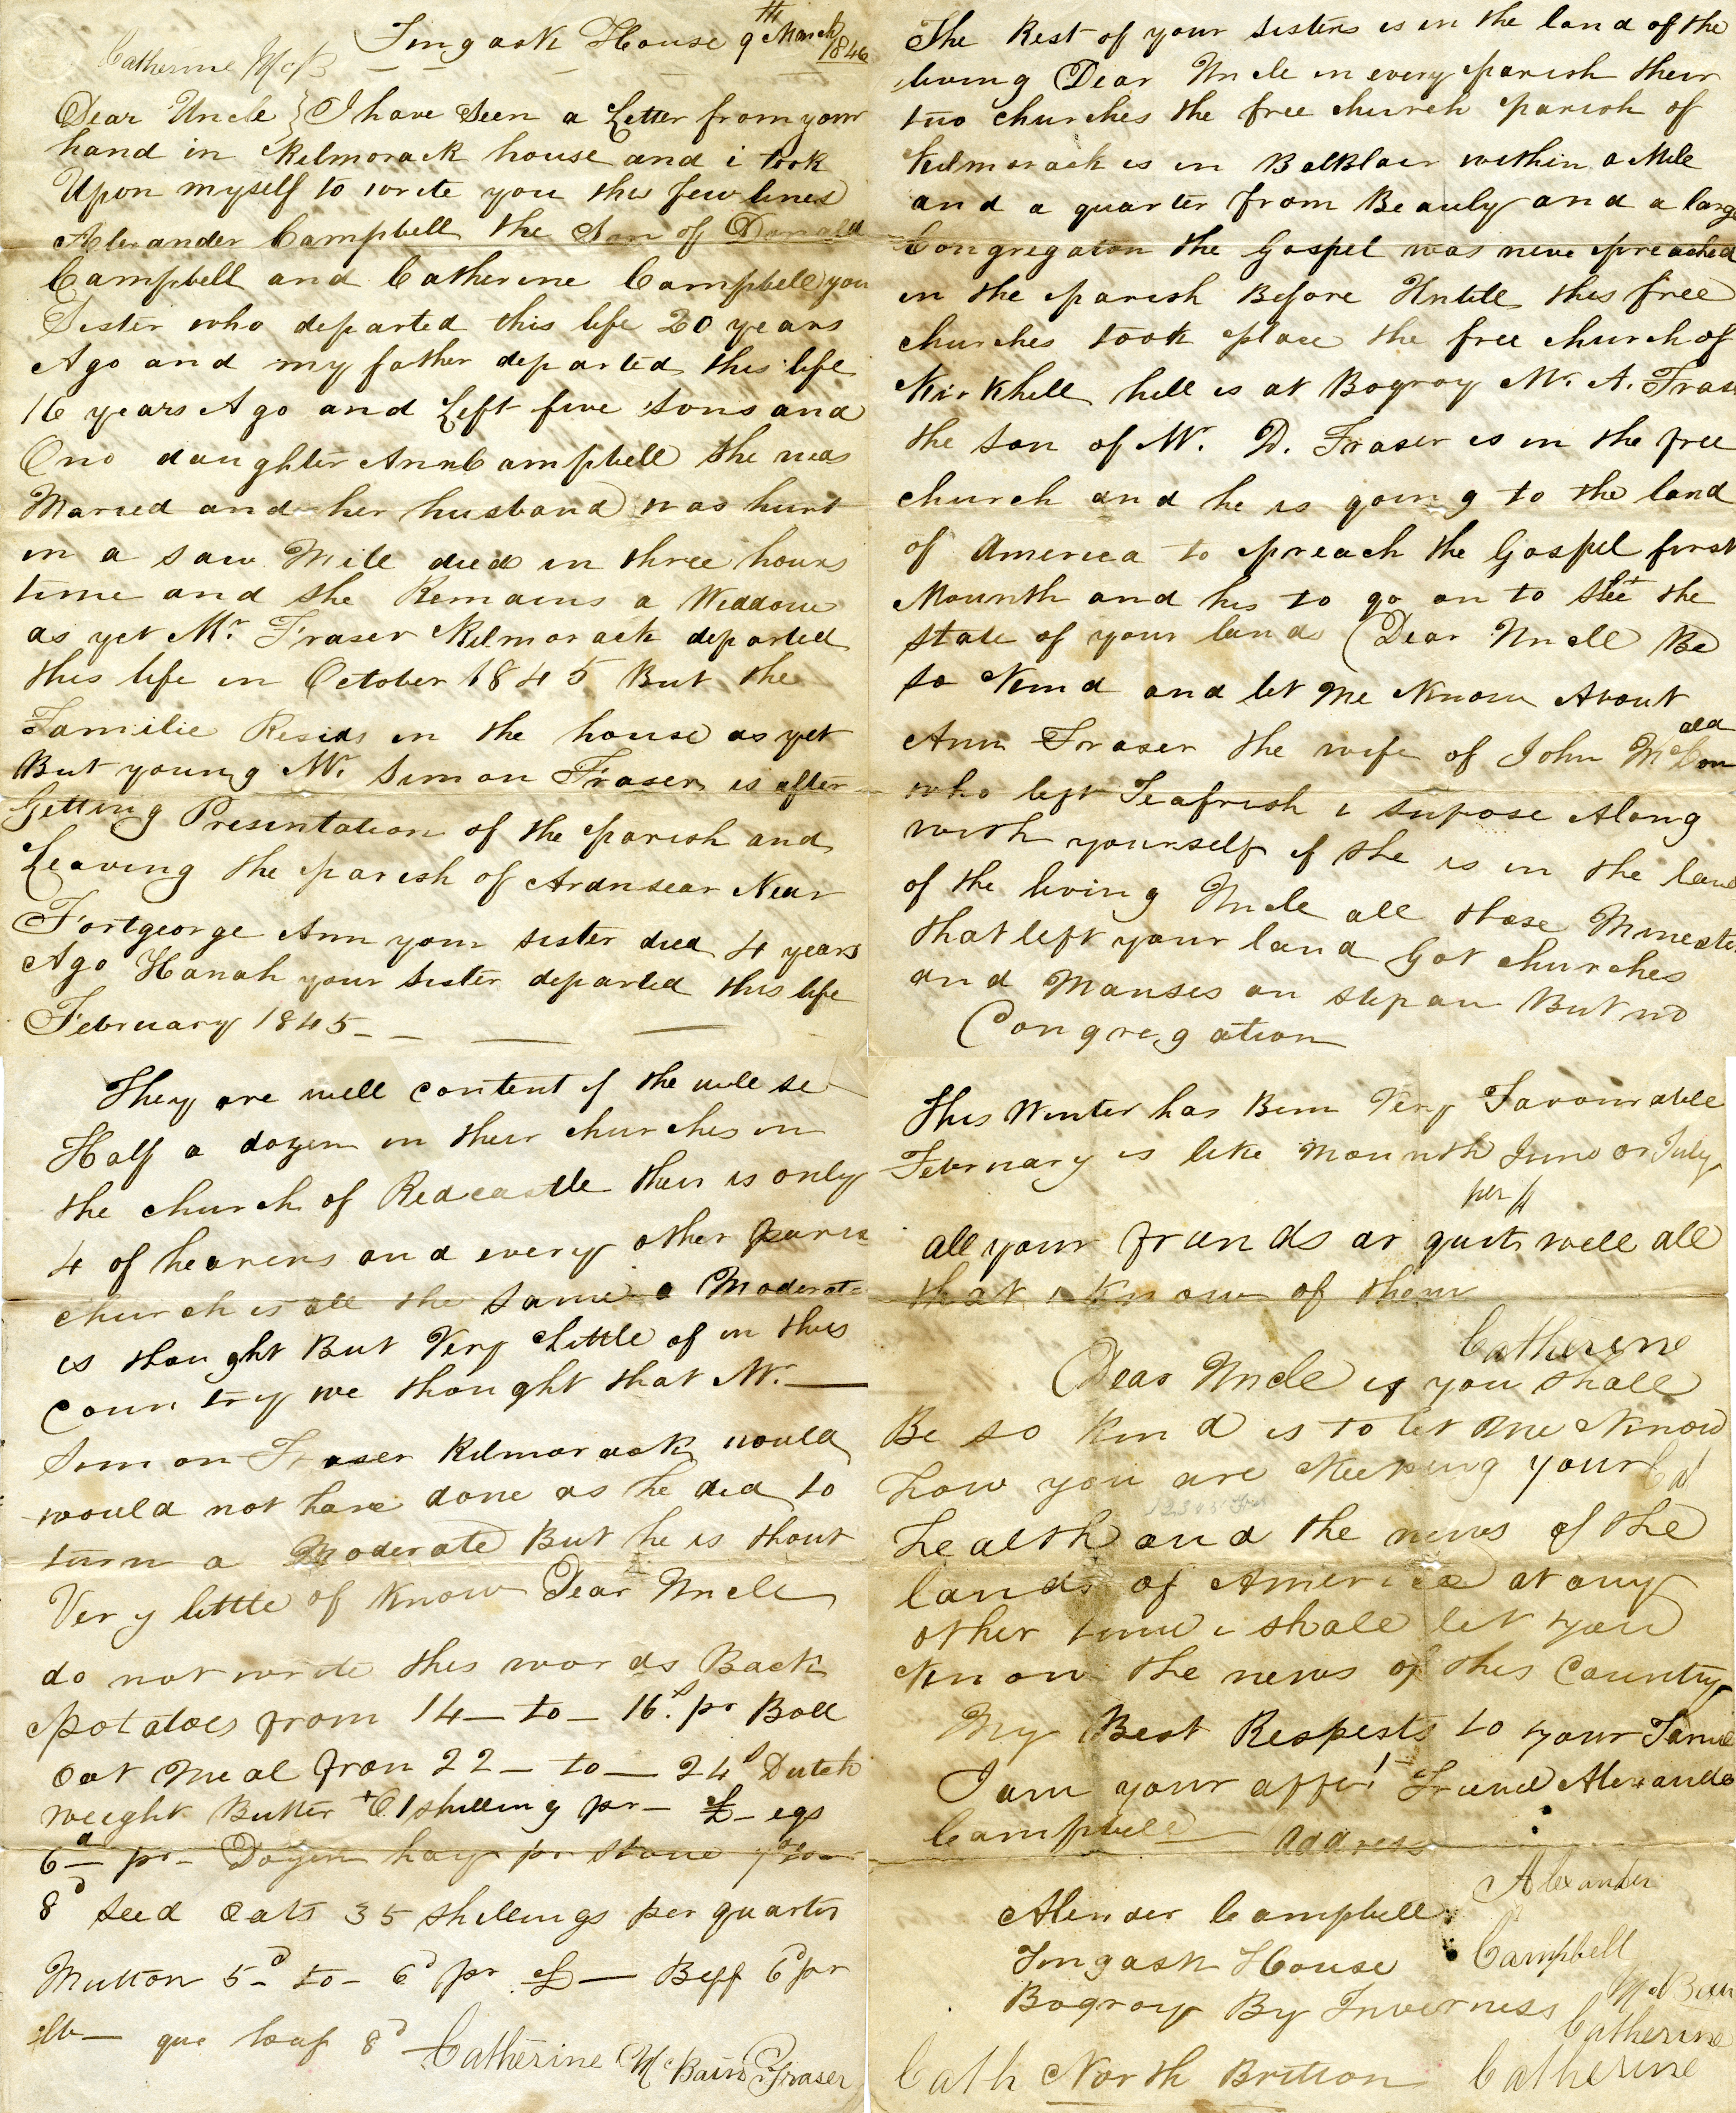 Catherine McB
Fingask House 9th March 1846
Dear Uncle } I have Seen a Letter from your
hand in Kilmorack house and i took
Upon myself to write you this few lines
Alexander Campbell the Son of Donald
Campbell and Catherine Campbell you
Sister who departed this life 20 years
Ago and my father departed this life
16 years Ago and Left five Sons and
One daughter Ann Campbell She was
Maried and her husband was hurt
in a saw Mill died in three hours
time and she Remains a Widdow
as yet Mr. Fraser Kilmorack departed
this life in October 1845 But the
Familie Resids in the house as yet
But young Mr. Simon Fraser is after
Getting Presintation of the parish and
Leaving the parish of Ardnsear Near
Fortgeorge Ann your sister died 4 years
Ago Hanah your sister departed this life
February 1845
The Rest of your sisters is in the land of the
living Dear Uncle in every parish their
two churches the free church parish of
Kilmorack is in BalBlair within a Mile
and a quarter from Beauly and a larg
Congregaton the Gospel was neve preached
in the parish Before Untill this free
churches took place the free church of
Kirkhill hill is at Bogroy Mr. A. Fras
the son of Mr. D. Fraser is in the free
church and he is going to the land
of America to preach the Gospel first
Mounth and his to go on to See the
state of your lands (Dear Uncle Be
so Kind and let Me Know About
Ann Fraser the wife of John McDonald
who left Teafrish i supose Along
with yourself if she is in the land
of the living Uncle all those Minester
that left your land Got churches
and Manses on stepan But no
Congregation
They are well content if the will se
Half a dozen in their churches in
the church of Redcastle their is only
4 of hearers and every other paris
church is all the same a Moderat
is thought But Very Little of in this
Country we thought that Mr.
Simon Fraser Kilmorack would
would not have done as he did to
turn a Moderate But he is thout
Very little of Know Dear Uncle
do not write this words Back
potatoes from 14 - to - 16s. pr Boll
Oat Meal fron 22 - to - 24s Dutch
weight Butter 1 shilling pr - £ - egs
6d pr - Dozen hay pr stone
8d seed Oats 35 shillings per quarter
Mutton 5d - to - 6d pr £ - Beff 6d pr
lb - qua loaf 8d Catherine McBain Fraser
this Winter has Bein Very Favourable
February is like Mounth June or July
per
all your friends ar quit well all
that i know of them
Catherine
Dear Uncle if you shall
Be so Kind is to let me Know
how you are Keeping your Cat
health and the news of the
lands of America at any
other time i shall let you
Know the news of this Country
My Best Respests to your Famile
I am your affet Friend Alexander
Campbell Address
Alexander
Alender Campbell
Campbell
Fingask House
McBain
Bogroy By Inverness
Catherine
Cath North Brition Catherine